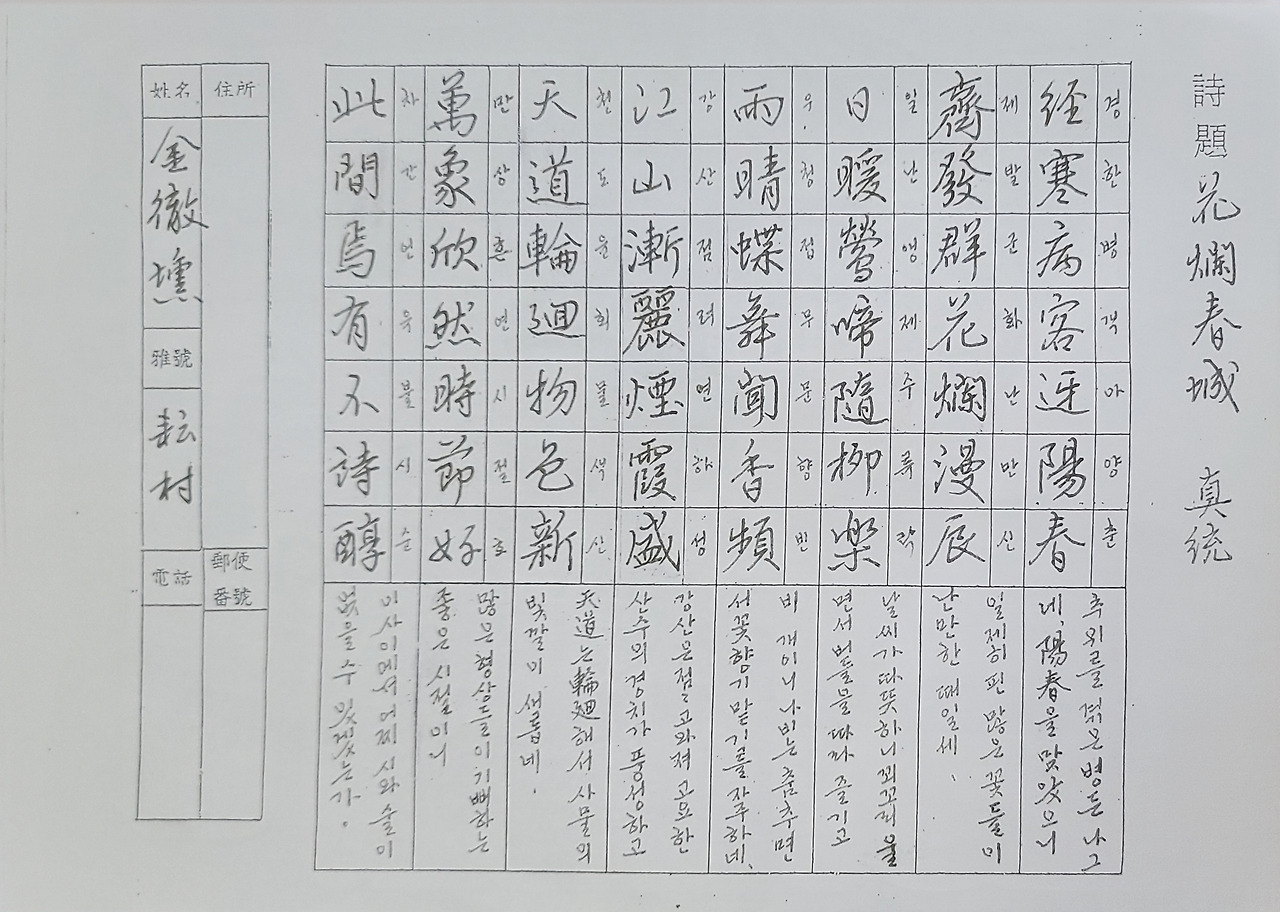 詩題 花爛春城 真統
経寒病客迓陽春
경한병객아양춘
추위를 겪은 병든 나그
네, 陽春을 맞았으니
齊發群花爛漫辰
제발군화난만신
일제히 핀 많은 꽃들이
난만한 때일세.
日暖鶯啼隨柳楽
일난앵제수류락
날씨가 따뜻하니 꾀꼬리 울
면서 버들을 따라 즐기고
雨晴蝶舞聞香頻
우청접무문향빈
비 개이니 나비는 춤추면
서 꽃향기 맡기를 자주하네.
江山漸麗煙霞盛
강산점려연하성
강산은 점점 고와져 고요한
산수의 경치가 풍성하고
天道輪廻物色新
천도윤회물색신
天道는 輪廻해서 사물의
빛깔이 새롭네.
萬象欣然時節好
만상흔연시절호
많은 형상들이 기뻐하는
좋은 시절이니
此間焉有不詩醇
차간언유불시순
이 사이에서 어찌 시와 술이
없을 수 있겠는가.
住所
郵便
番號
姓名
金徹
雅號
耘村
電話